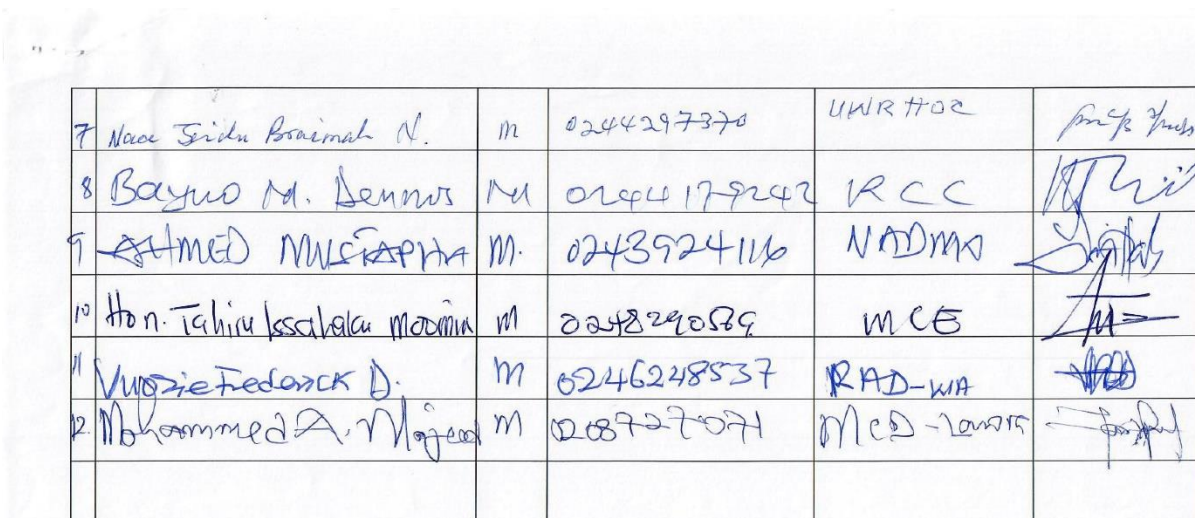 7 Naa Seidu Braimah N. m 0244297370 UWR HOC
8 Bayuo M. Dennis M 0244179242 RCC
9 AHMED MUSTAPHA M. 0243924116 NADMO
10 Hon. Tahiru Issahaku Moomin m 0248290589 MCE
11 Vuozie Federick D. m 0246248537 RAD-WA
12. Mohammed A. Majeed M 0208727071 MCD-Lawra